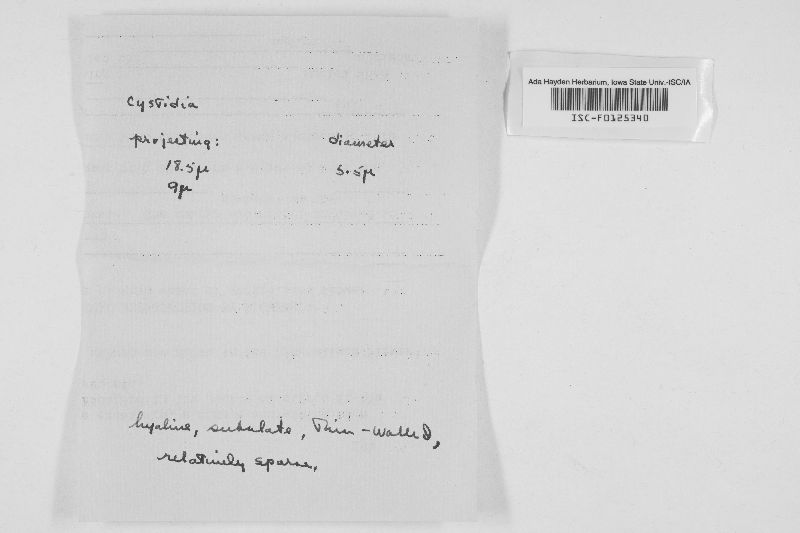 Cystidia
projecting: diameter
18.5µ 5.5µ
9µ
hyaline, subulate, thin-walled,
relatively sparse,
Ada Hayden Herbarium, Iowa State Univ.-ISC/IA
ISC-F0125340